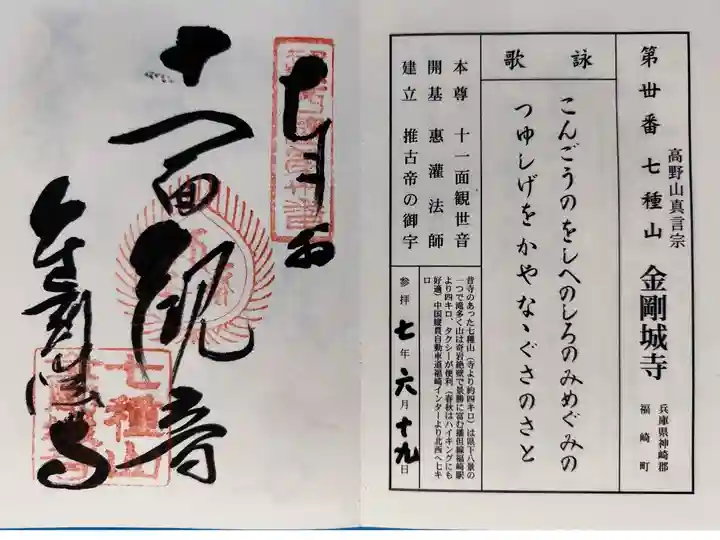 第丗番 七種山 金剛城寺
高野山真言宗
兵庫県神崎郡
福崎町
詠歌
こんごうのをしへのしろのみめぐみの
つゆしげをかやなゝぐさのさと
本尊 十一面観世音
開基 惠灌法師
建立 推古帝の御宇
昔寺のあった七種山（寺より約四キロ）は県下八景の
一つで滝多く山は奇岩絶壁で景勝に富む播但線福崎駅
より四キロ、タクシーが便利。（春秋はハイキングにも
好適）中国縦貫自動車道福崎インターより北西へ七キ
ロ
参拝 七年六月十九日
十一面観音
金剛城寺
七種山